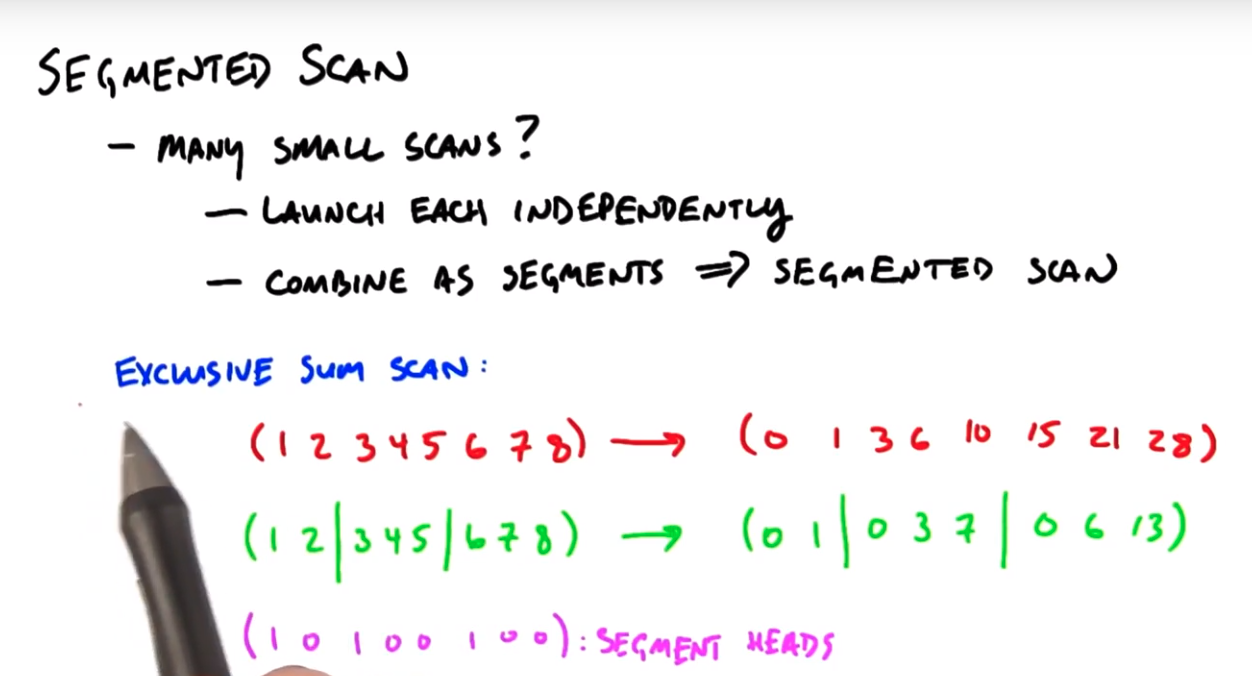 SEGMENTED SCAN
- MANY SMALL SCANS?
- LAUNCH EACH INDEPENDENTLY
- COMBINE AS SEGMENTS => SEGMENTED SCAN
EXCLUSIVE SUM SCAN:
(1 2 3 4 5 6 7 8) → (0 1 3 6 10 15 21 28)
(1 2|3 4 5|6 7 8) → (0 1|0 3 7|0 6 13)
(1 0 1 0 0 1 0 0): SEGMENT HEADS